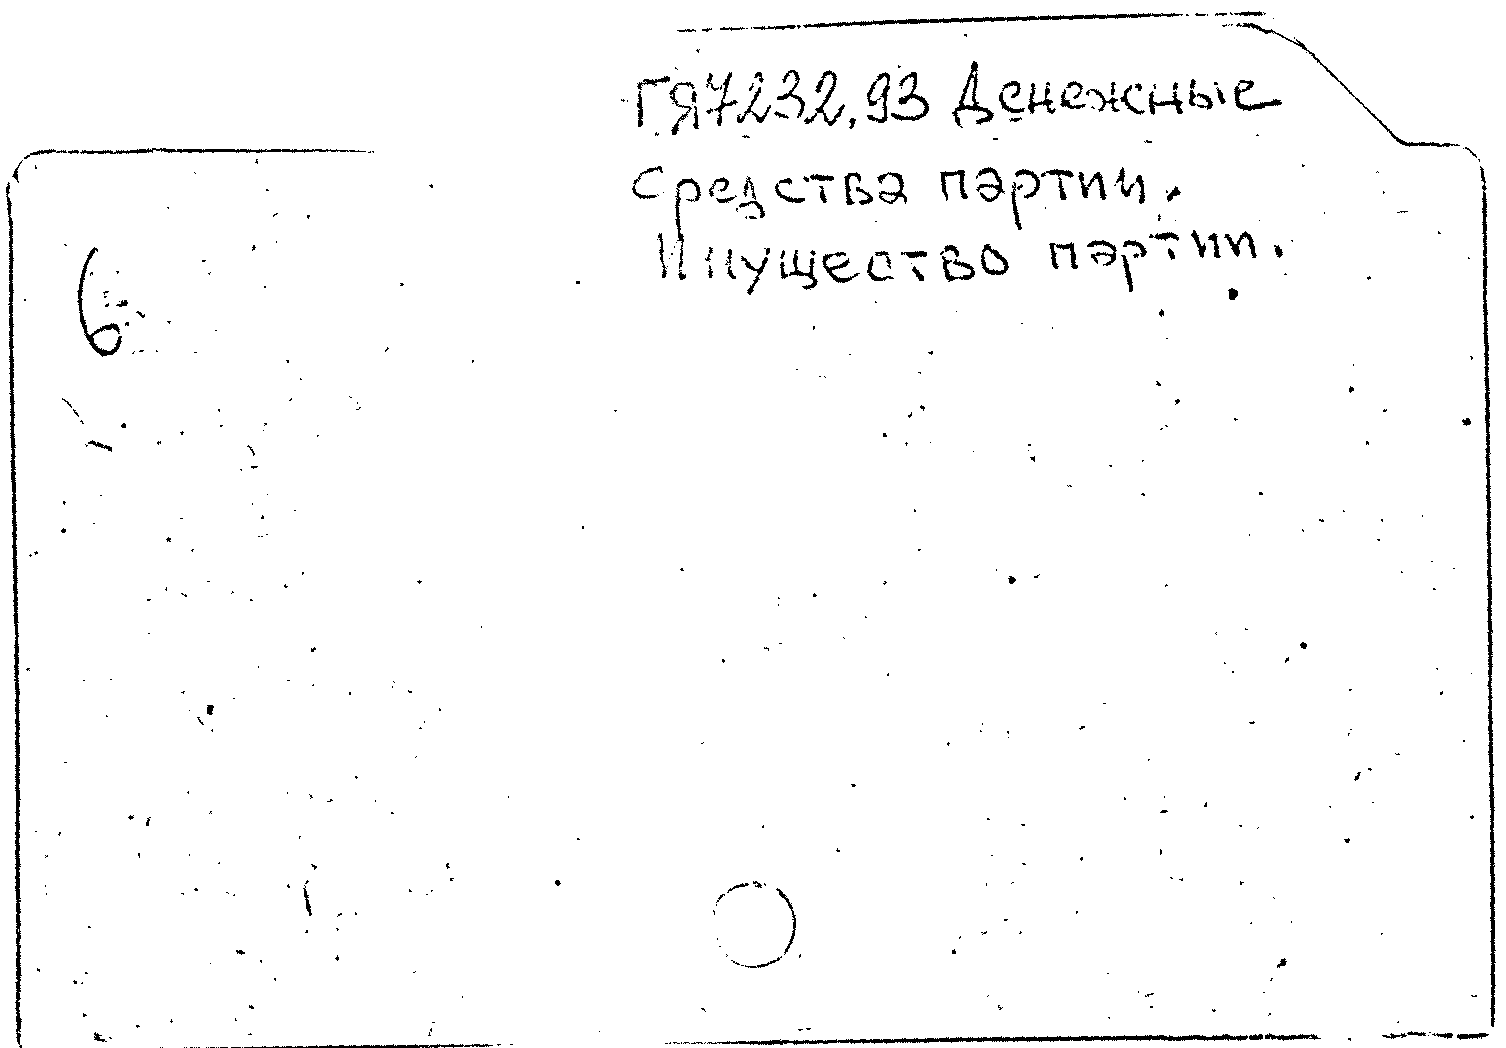 ГЯ7232,93 Денежные
средства партии.
Имущество партии.
6